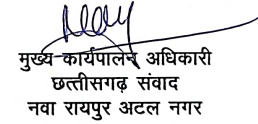 मुख्य कार्यपालन अधिकारी
छत्तीसगढ़ संवाद
नवा रायपुर अटल नगर